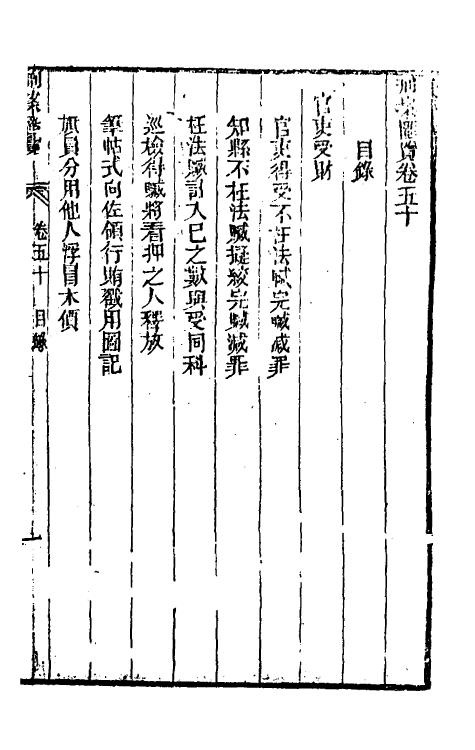 刑案匯覽卷五十
目錄
官吏受財
官吏得受不枉法贓完贓减罪
知縣不枉法贓擬絞完贓减罪
枉法贓計入已之數與受同科
巡檢得贓將看押之人釋放
筆帖式向佐領行賄戳用圖記
旗員分用他人浮冒木價
刑案匯覽 卷五十 目錄